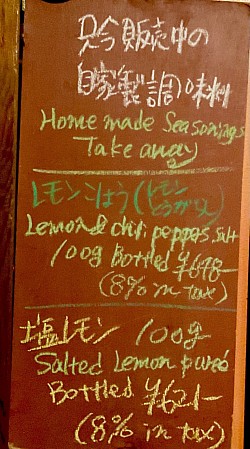 只今販売中の
自家製調味料
Home made Seasonings
Take away
レモンこしょう(レモン
とうがらし)
Lemon & chili peppers salt
100g Bottled ¥698-
(8% in tax)
塩レモン 100g
Salted Lemon pureé
Bottled ¥621-
(8% in tax)